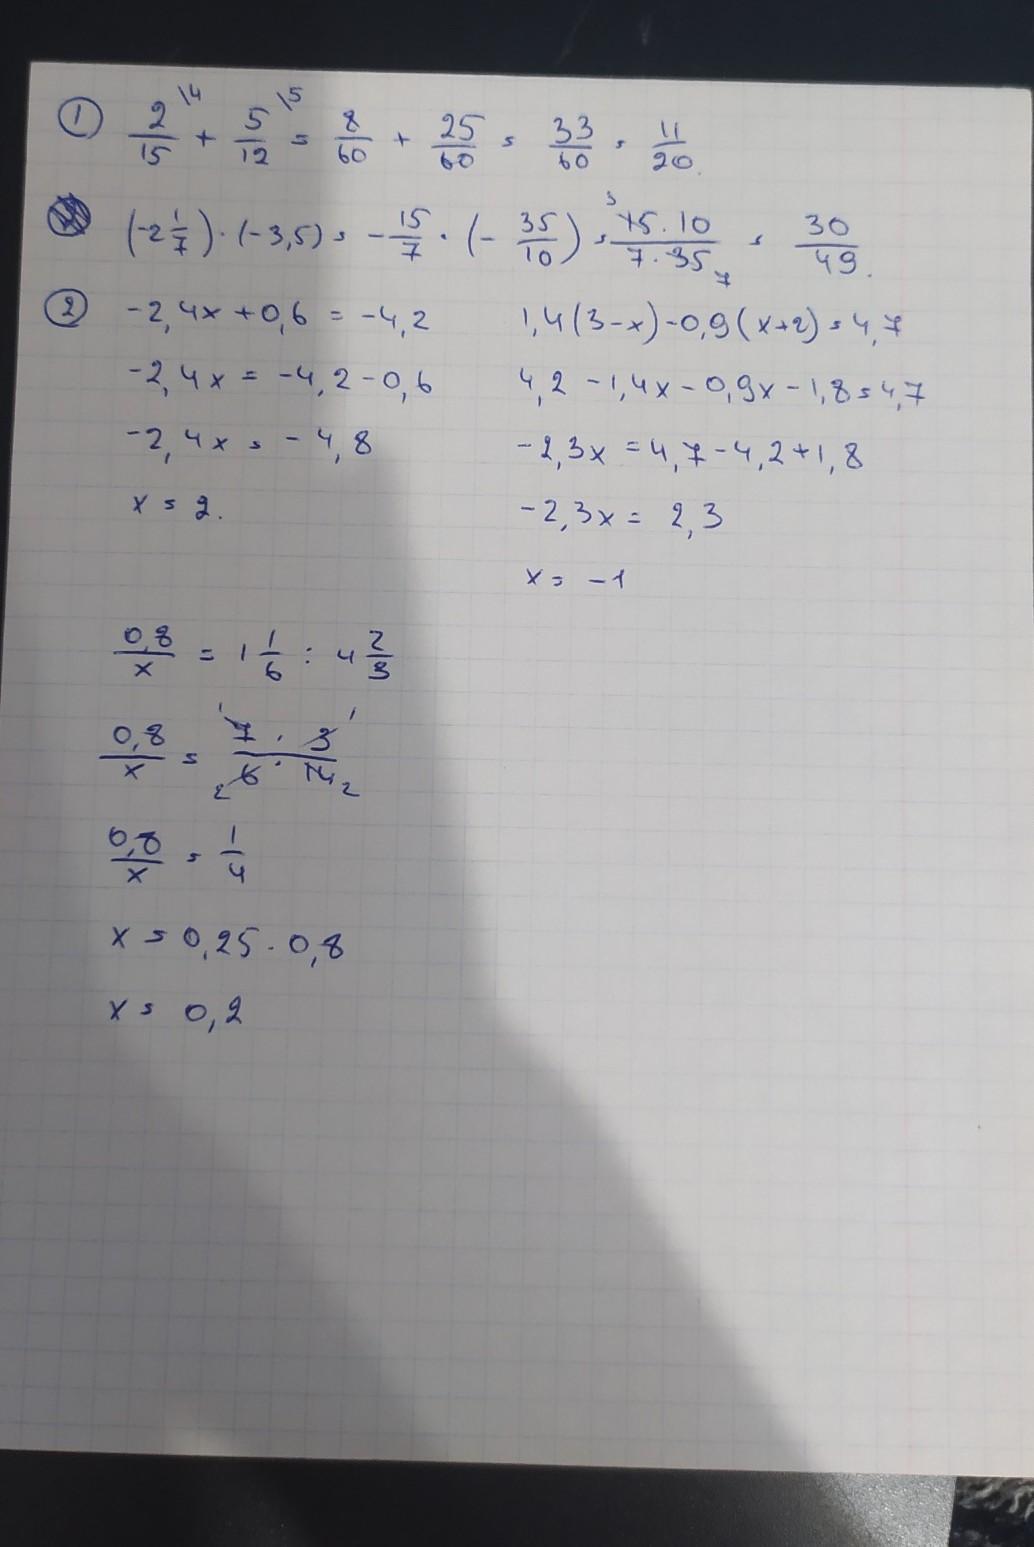 ① 2/15 \4 + 5/12 \5 = 8/60 + 25/60 = 33/60 = 11/20.
(-2 1/7) · (-3,5) = -15/7 · (- 35/10) = 3 15·10 / 7·35 7 = 30/49.
② -2,4x + 0,6 = -4,2
-2,4x = -4,2 - 0,6
-2,4x = -4,8
x = 2.
1,4(3-x) - 0,9(x+2) = 4,7
4,2 - 1,4x - 0,9x - 1,8 = 4,7
-2,3x = 4,7 - 4,2 + 1,8
-2,3x = 2,3
x = -1
0,8/x = 1 1/6 : 4 2/3
0,8/x = 1 7 · 3 1 / 2 6 · 14 2
0,8/x = 1/4
x = 0,25 · 0,8
x = 0,2